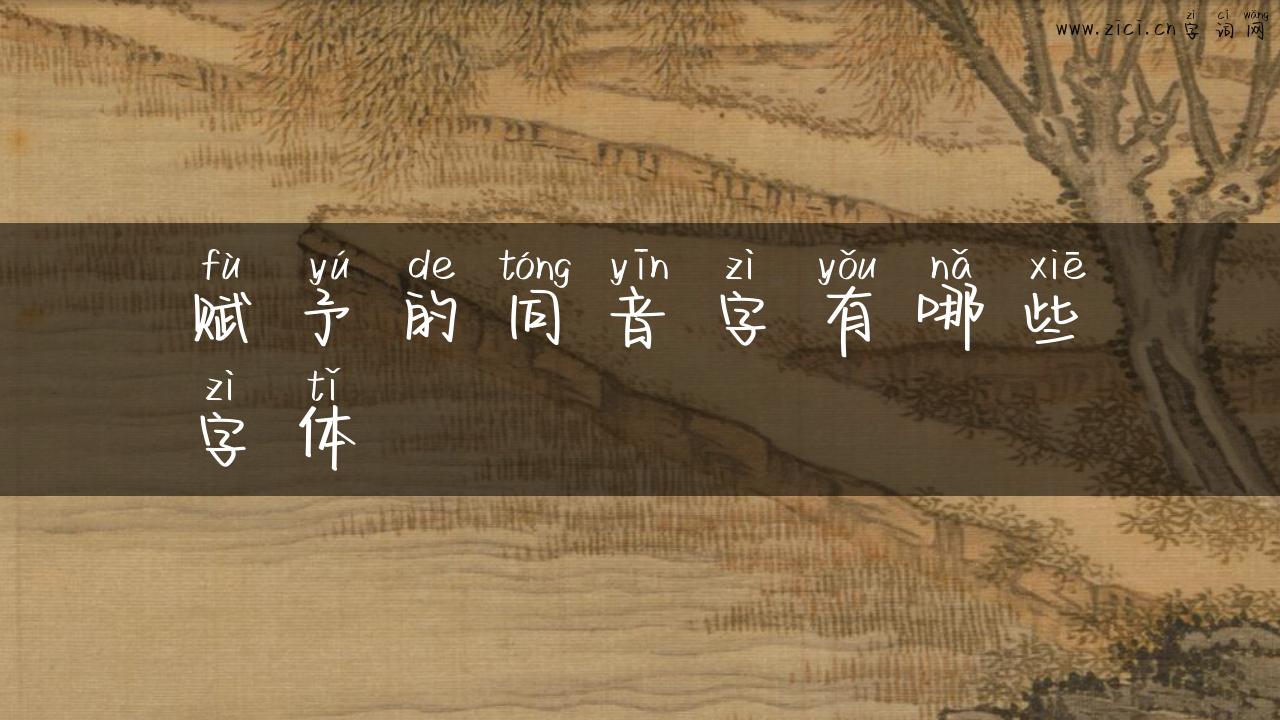 zì cí wǎng
www.zici.cn字词网
fù yú de tóng yīn zì yǒu nǎ xiē
赋予的同音字有哪些
zì tǐ
字体